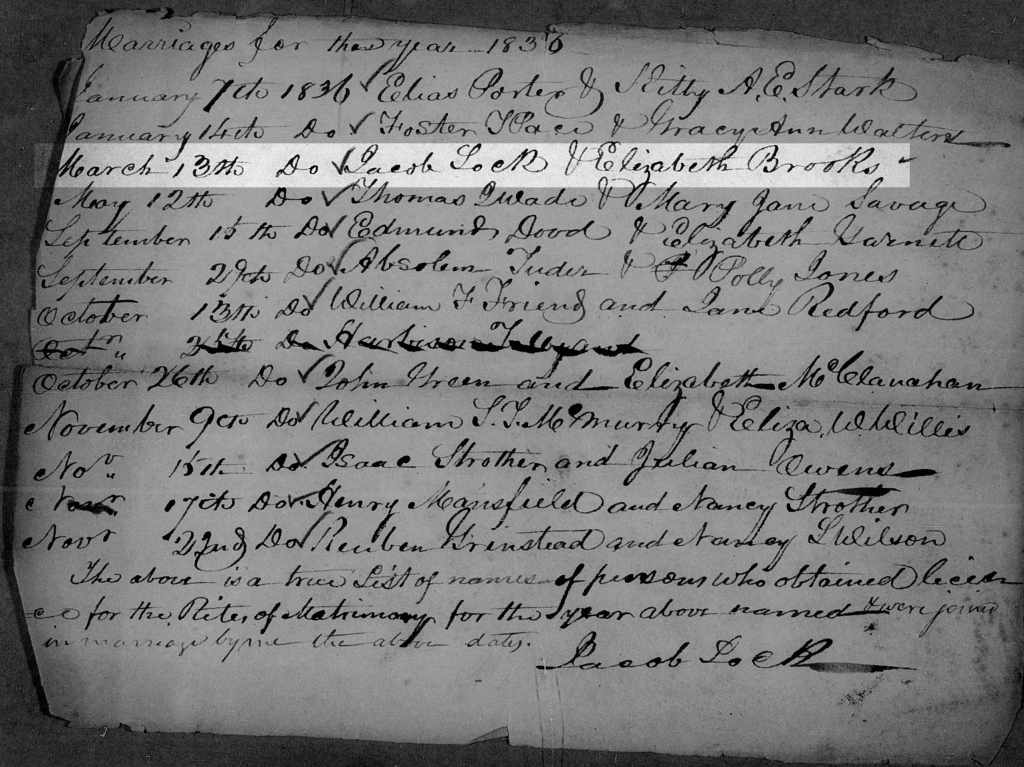 Marriages for the year 1836
January 7th 1836 ✓ Elias Porter & Kitty A. E. Stark
January 14th Do ✓ Foster T Pace & Gracy Ann Walters
March 13th Do ✓ Jacob Lock & Elizabeth Brooks
May 12th Do ✓ Thomas Q Wade & Mary Jane Savage
September 15th Do ✓ Edmund Dood & Elizabeth Garnett
September 29th Do ✓ Absolem Tuder & Polly Jones
October 13th Do ✓ William F Friend and Jane Redford
Do
October 26th Do ✓ John Green and Elizabeth McClanahan
November 9th Do ✓ William S. T. McMurry & Eliza. W. Willis
Novr " 15th Do. ✓ Isaac Strother and Julian Owens
17th Do ✓ Henry Mansfield and Nancy Strother
Novr 22nd Do ✓ Reuben Grinstead and Nancy S Wilson
The above is a true List of names of persons who obtained licen
ce for the Rites of Matrimony for the year above named & were joined
in marriage by me the above dates.
Jacob Lock